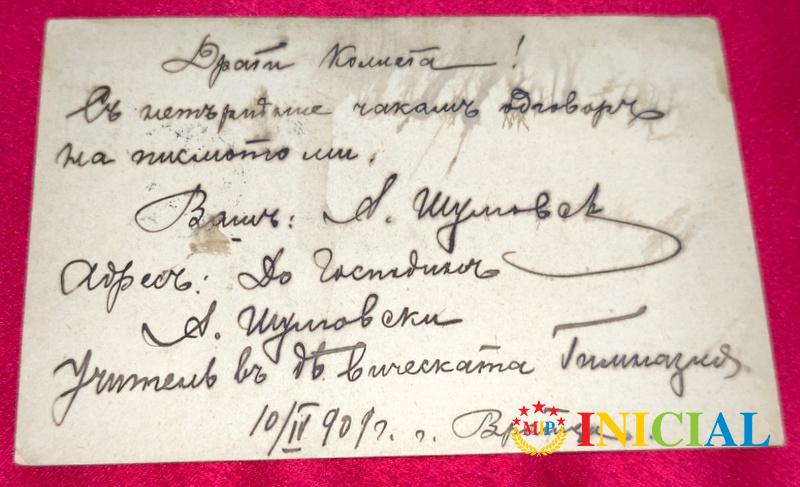 Драги Колиета!
Съ нетърпѣние чакамъ одговоръ
на писмото ми.
Вашъ: А. Шумовск
Адресъ: До Господинъ
А. Шумовски
Учитель въ дѣвическата Гимназия
10/IV 901 г. г.
MP INICIAL